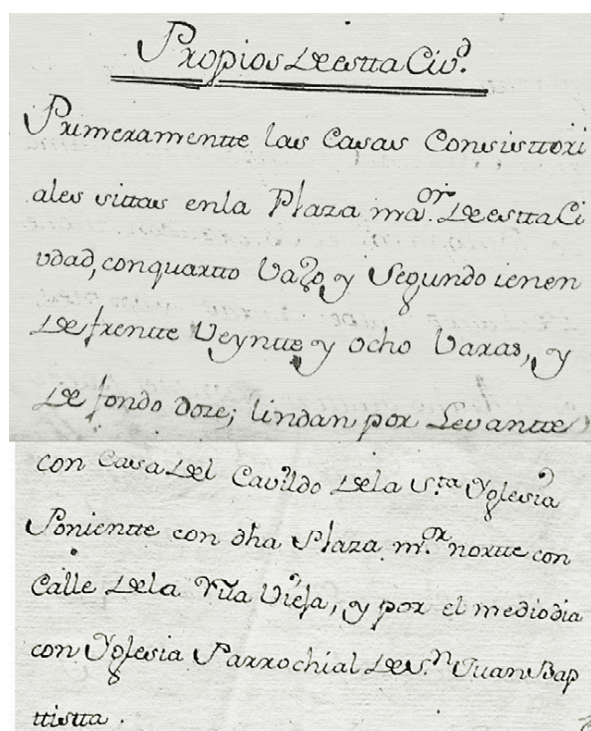 Propios de estta Ciud.
Primeramentte las Casas Consisttori
ales sittas enla Plaza maor. de estta Ci
udad, conquartto vaxo y Segundo ienen
de frentte Veyntte y ocho varas, y
de fondo doze; lindan por Levantte
con Casa del Cavildo dela Sta. Yglesia
Ponientte con dha Plaza mor. nortte con
Calle dela Rua Vieja, y por el mediodia
con Yglesia Parrochial de Sn. Juan Bap
ttistta.